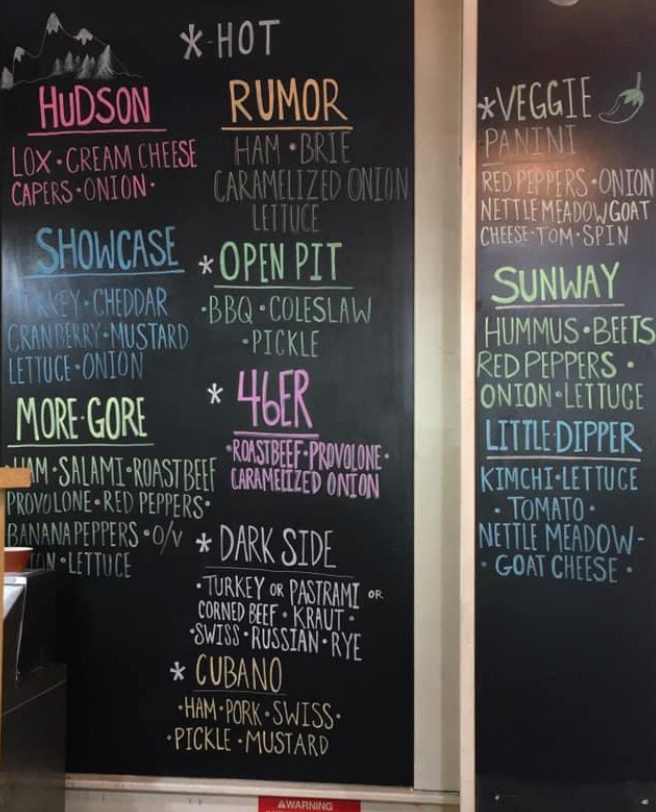 * HOT
HUDSON
LOX • CREAM CHEESE
CAPERS • ONION •
SHOWCASE
CHEDDAR
CRANBERRY • MUSTARD
LETTUCE • ONION
MORE GORE
HAM • SALAMI • ROASTBEEF
PROVOLONE • RED PEPPERS •
BANANA PEPPERS • O/V
• LETTUCE
RUMOR
HAM • BRIE
CARAMELIZED ONION
LETTUCE
* OPEN PIT
• BBQ • COLESLAW
• PICKLE
* 46ER
• ROASTBEEF • PROVOLONE •
CARAMELIZED ONION
* DARK SIDE
• TURKEY OR PASTRAMI OR
CORNED BEEF • KRAUT •
• SWISS • RUSSIAN • RYE
* CUBANO
• HAM • PORK • SWISS •
• PICKLE • MUSTARD
*VEGGIE
PANINI
RED PEPPERS • ONION
NETTLE MEADOW GOAT
CHEESE • TOM • SPIN
SUNWAY
HUMMUS • BEETS
RED PEPPERS •
ONION • LETTUCE
LITTLE DIPPER
KIMCHI • LETTUCE
• TOMATO •
NETTLE MEADOW -
• GOAT CHEESE •
WARNING